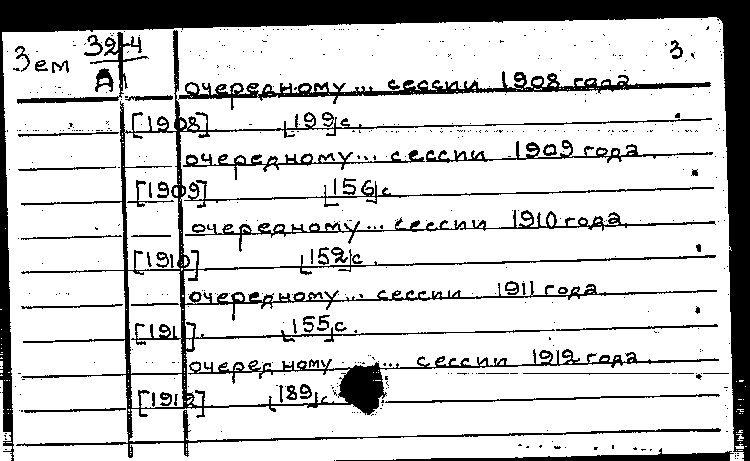 Зем 32-4 3.
А
очередному... сессии 1908 года
[1908]. [199]с.
очередному... сессии 1909 года.
[1909]. [156]с
очередному... сессии 1910 года.
[1910] [152]с.
очередному... сессии 1911 года.
[1911]. [155]с.
очередному ... сессии 1912 года.
[1912] [189]с